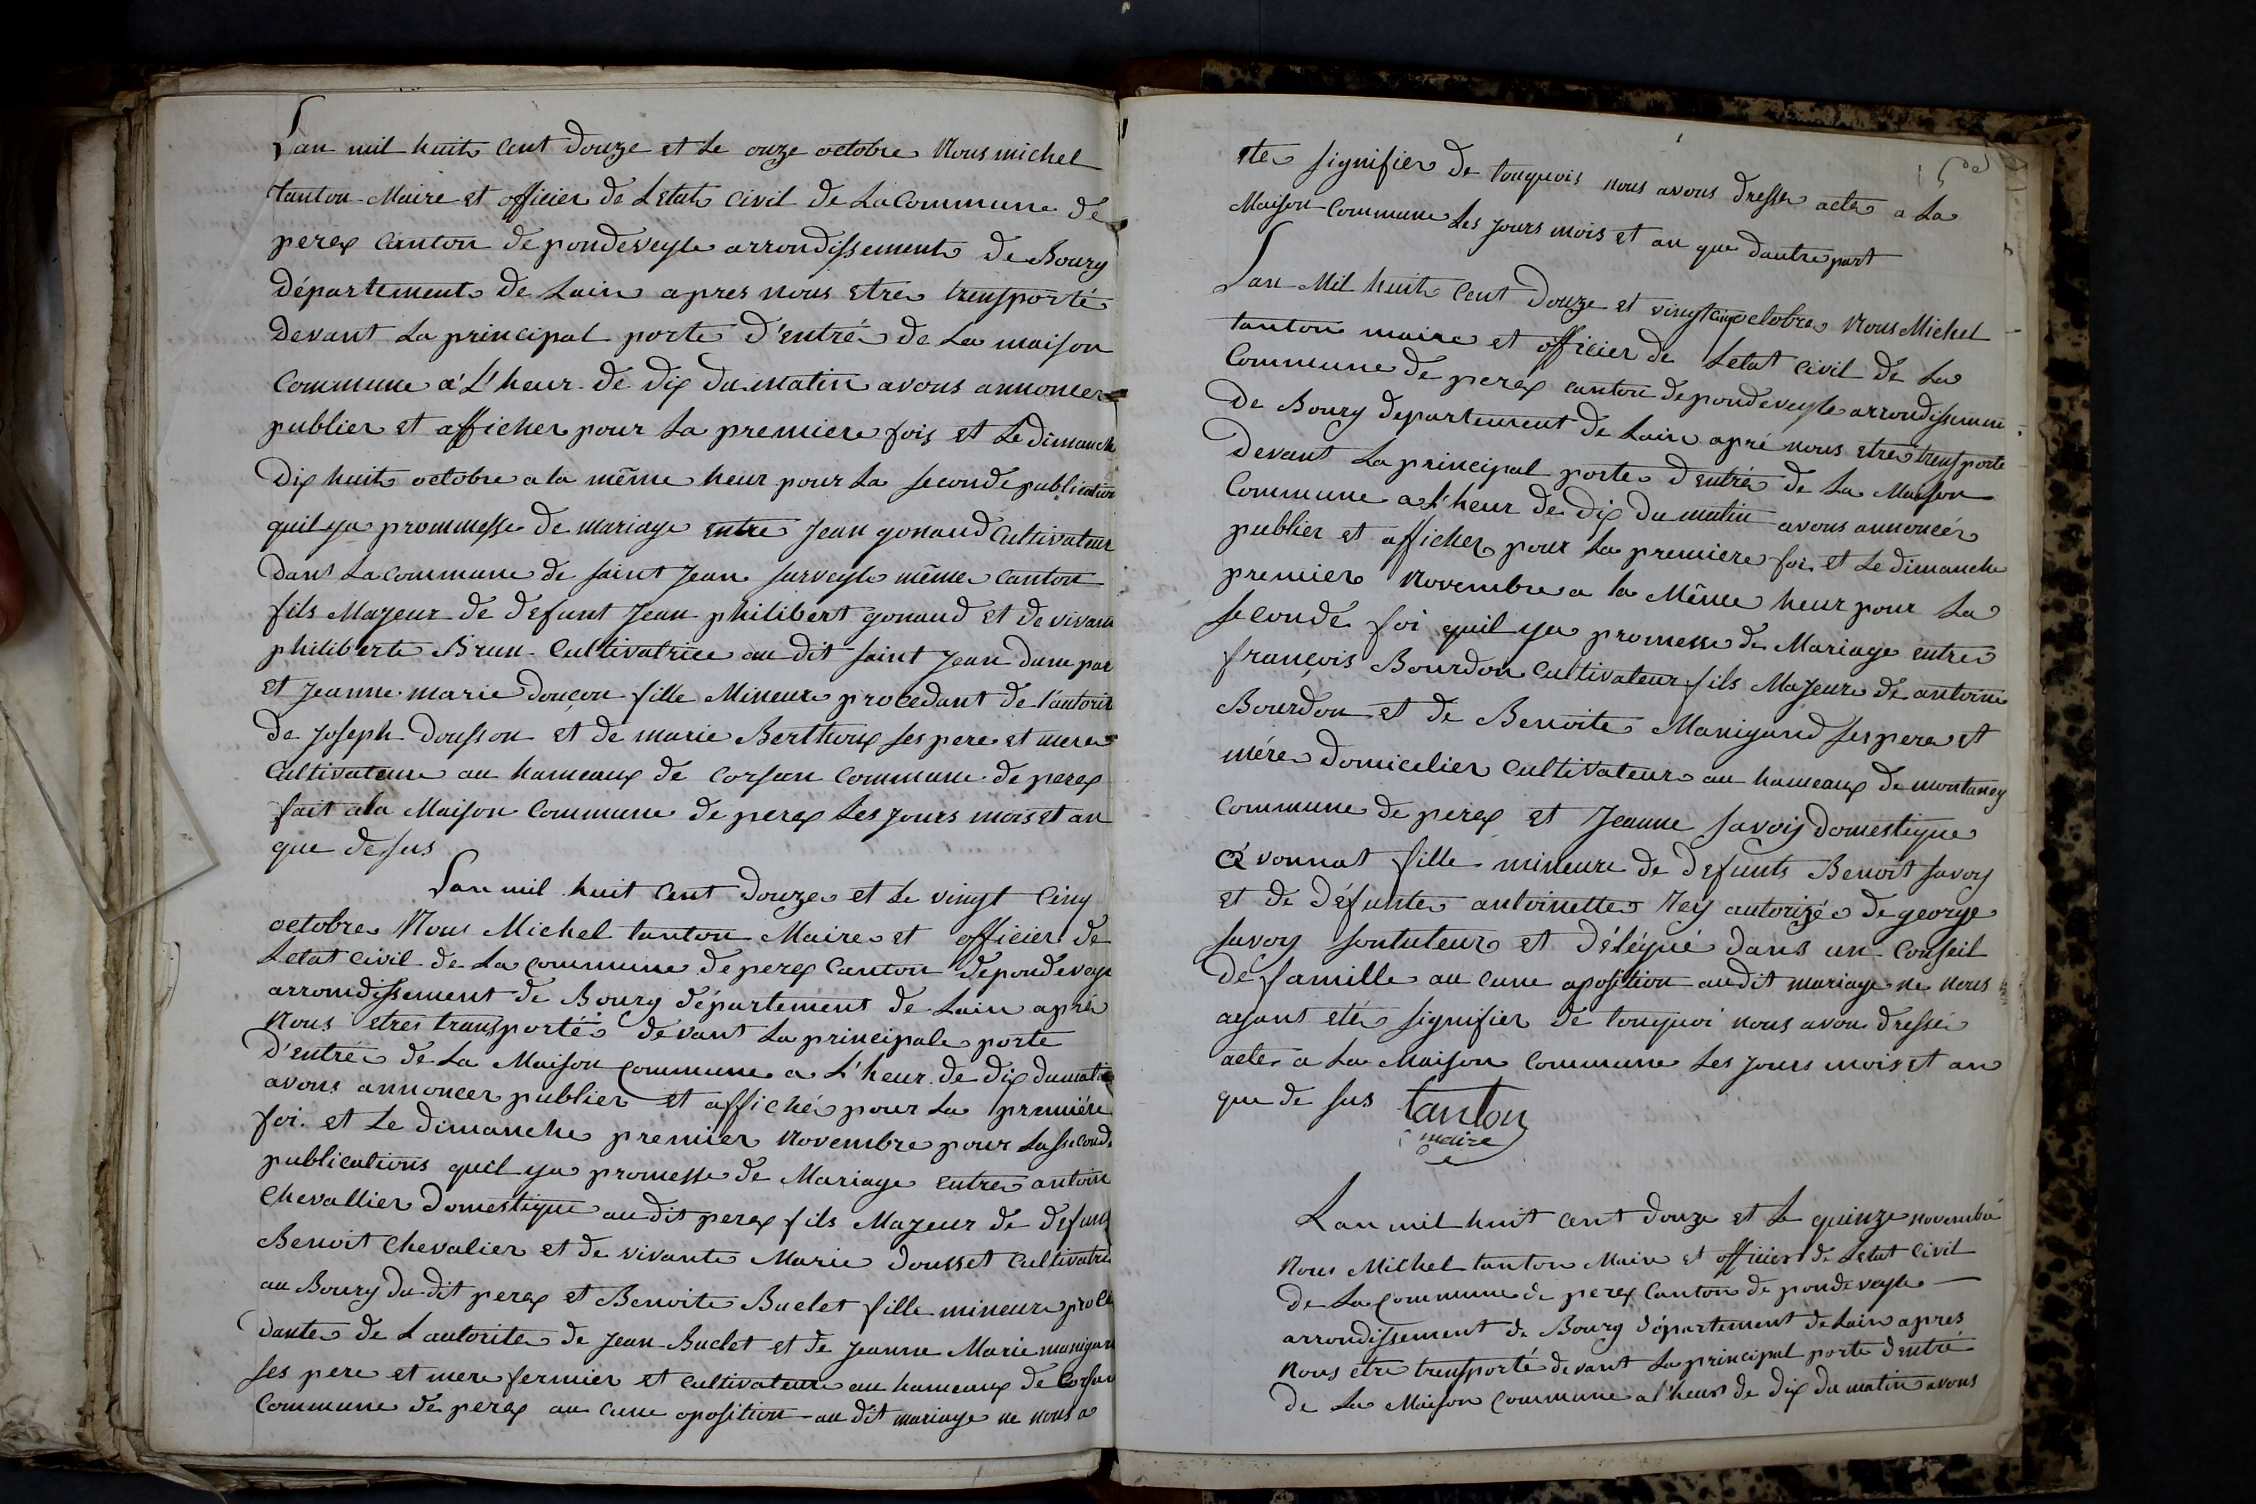 Lan mil huit cent douze et le onze octobre Nous michel
tanton Maire et officier de Letat civil de La Commune de
perex canton de pondeveyle arrondissement de Bourg
département de Lain apres nous etre transporté
devant La principal porte d'entré de La maison
commune a L'heur de dix du matin avons annoncer
publier et afficher pour La premiere fois et Le dimanche
dix huit octobre a la même heur pour La seconde publication
quil ya prommesse de mariage entre Jean gonaud Cultivateur
dans La commune de saint Jean surveyle même canton
fils Majeur de defunt Jean philibert gonaud et de vivante
philiberte Brun Cultivatrice au dit saint Jean dune part
et Jeanne marie douçon fille Mineure procedant de l'autorit
de Joseph dousson et de marie Berthoux ses pere et mere
Cultivateure au hameaux de corsan commune de perex
fait ala Maison Commune de perex Les jours mois et an
que desus
Lan mil huit cent douze et le vingt cinq
octobre Nous Michel tanton Maire et officier de
Letat civil de La commune de perex Canton depondeveyl
arrondissement de Bourg département de Lain après
Nous etre transportée devant La principale porte
d'entrée de La Maison commune a L'heur de dix du matin
avons annoncer publier et affiché pour La première
foi et Le dimanche premier Novembre pour La seconde
publications quil ya promesse de Mariage entre antoine
chevallier domestique au dit perex fils Majeur de defunt
Benoit chevalier et de vivante Marie dousset Cultivatrice
au Bourg du dit perex et Benoite Buclet fille mineure proce
dante de Lautorite de Jean Buclet et de Jeanne Marie manigand
ses pere et mere fermier et Cultivateure au hameaux de Corsan
Commune de perex au cune oposition au dit mariage ne nous a
ete signifier de touquois nous avons dresser acte a La
Maison Commune Les jours mois et an que dautre part
Lan Mil huit cent douze et vingt cinq octobre Nous Michel
tanton maire et officier de Letat civil de La
Commune de perex canton depondeveyle arrondissement
de Bourg departement de Lain apré nous etre transporté
devant La principal porte dentré de La Maison
Commune a L'heur de dix du matin avons annoncér
publier et afficher pour La premiere foi et Le dimanche
premier Novembre a la Même heur pour La
seconde foi quil ya promesse de Mariage entre
françois Bourdon Cultivateur fils Majeure de antoine
Bourdon et de Benoite Manigand ses pere et
mére domicilier Cultivateur au hameaux de montaney
Commune de perex et Jeanne savoy domestique
a vonnat fille mineure de defunts Benoit savoy
et de défunte antoinette Ney autorizée de george
savoy sontuteur et délégué dans un Conseil
de famille au cune oposition audit mariage ne nous
ayant eté signifier de touquoi nous avon dressé
acte a La Maison Commune Les jours mois et an
que de sus tanton
maire
Lan mil huit cent douze et Le quinze novembre
Nous Michel tanton Maire et officier de Letat Civil
de La Commune de perex Canton de pondeveyle
arrondissement de Bourg département de Lain apres
Nous etre transporté devant La principal porte dentré
de La Maison Commune a L'heur de dix du matin avons